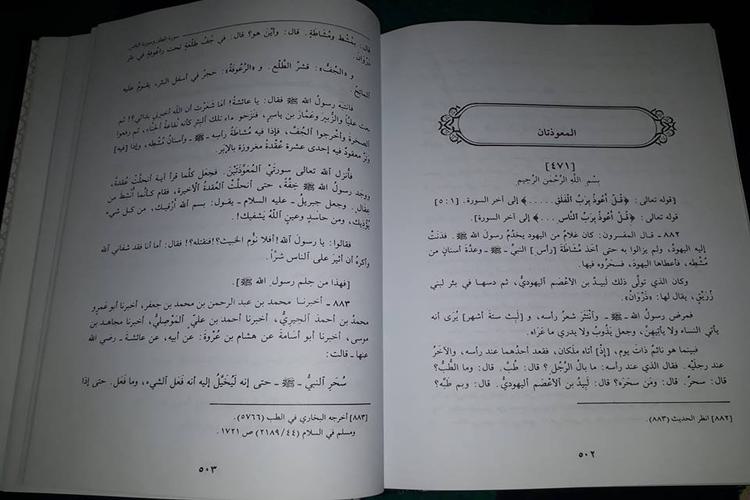 المعوذتان
[٤٧١]
بسم اللَّهِ الرَّحْمٰنِ الرَّحِيمِ
[قوله تعالى: ﴿قُلْ أَعُوذُ بِرَبِّ الْفَلَقِ .....﴾ إلى آخر السورة. [١ : ٥]
قوله تعالى: ﴿قُلْ أَعُوذُ بِرَبِّ النَّاسِ ....﴾ إلى آخر السورة].
٨٨٢ ـ قال المفسرون: كان غلامٌ من اليهود يخدُمُ رسولَ الله ﷺ، فدنَتْ
إليه اليهودُ، ولم يزالوا به حتى أخذ مُشَاطَةَ [رأس] النبيِّ ـ ﷺ ـ وعدَّةَ أسنانٍ من
مُشْطِه، فأعطاها اليهودَ، فسحَرُوه فيها.
وكان الذي تولَّى ذلك لَبِيدُ بن الأعْصَم اليهوديُّ، ثم دسها في بئر لبني
زُرَيْقٍ، يقال لها: «ذَرْوَانُ».
فمرض رسولُ الله ـ ﷺ ـ وانْتَثَر شعرُ رأسه، و [لبث ستةَ أشهر] يُرَى أنه
يأتي النساء ولا يأتيهنَّ، وجعل يَذُوبُ ولا يدري ما عَرَاه.
فبينما هو نائمٌ ذاتَ يوم، [إذْ] أتاه ملكان، فقعد أحدُهما عند رأسه، والآخَرُ
عند رجليْه. فقال الذي عند رأسه: ما بالُ الرَّجُل؟ قال: طُبَّ. قال: وما الطُّبُّ؟
قال: سحرٌ. قال: ومَن سحَرَه؟ قال: لَبِيدُ بن الأعْصَم اليهوديُّ. قال: وبم طَبَّه؟
[٨٨٢] انظر الحديث (٨٨٣).
٥٠٢
سورة الفلق وسورة الناس
قال: بِمُشْط ومُشَاطَةٍ. قال: وأيْن هو؟ قال: في جُفِّ طَلْعَةٍ تحت راعُوفَةٍ في بئر
ذَرْوَانَ.
و «الجُفُّ»: قشرُ الطَّلْع. و «الرَّاعُوفَةُ»: حجرٌ في أسفل البئر، يقومُ عليه
المائحُ.
فانتبه رسولُ الله ﷺ فقال: يا عائشةُ! أما شَعَرْتِ أن الله أخبرني بدائي؟! ثم
بعث عليًّا والزُّبيرَ وعمَّارَ بن ياسرٍ، فنزحوا ماء تلك البئر كأنه نُقاعةُ الحِنَّاء، ثم رفعوا
الصخرةَ وأخرجوا الجُفَّ، فإذا فيه مُشَاطةُ رأسِه ـ ﷺ ـ وأسنانُ مُشْطِه، وإذا [فيه]
وتَرٌ معقودٌ فيه إحدى عشرة عُقْدةً مغروزةً بالإبَر.
فأنزل الله تعالى سورتَيْ الْمُعَوِّذَتَيْنِ، فجعل كلَّما قرأ آيةً انحلَّتْ عُقْدةٌ،
ووجد رسولُ الله ﷺ خِفَّةً، حتى انحلَّتْ العُقدةُ الأخيرة، فقام كأنَّما أُنْشِطَ من
عِقالٍ. وجعل جبريلُ ـ عليه السلام ـ يقول: بسم الله أَرْقِيك، من كل شيء
يُؤْذِيك، ومن حاسدٍ وعينٍ اللَّهُ يَشفيك!.
فقالوا: يا رسولَ الله! أفلا نَؤُم الخبيثَ؟! فنقتلَه؟! فقال: أما أنا فقد شفاني الله
وأكرَهُ أن أثيرَ على الناس شرًّا.
[فهذا من حِلم رسولِ الله ﷺ].
٨٨٣ ـ أخبرنا محمد بن عبد الرحمن بن محمد بن جعفر، أخبرنا أبو عَمرو
محمدُ بن أحمدَ الحِيرِيُّ، أخبرنا أحمد بن عليّ المَوْصِليُّ، أخبرنا مجاهد بن
موسى، أخبرنا أبو أسَامَة عن هشام بن عُرْوةَ: عن أبيه، عن عائشة ـ رضي الله
عنها ـ قالت:
سُحرَ النبيُّ ـ ﷺ ـ حتى إنه لَيُخيَّلُ إليه أنه فَعَل الشيءَ، وما فَعَل. حتى إذا
[٨٨٣] أخرجه البخاري في الطب (٥٧٦٦).
ومسلم في السلام (٢١٨٩/٤٤) ص ١٧٢١.
٥٠٣